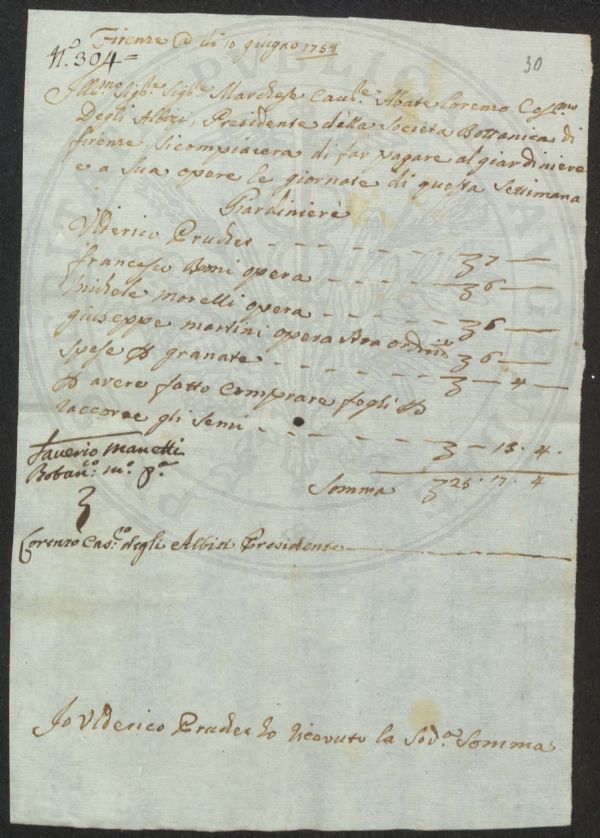 Firenze A dì 10 giugno 1758
N.º 304=
30
Ill.mo Sig.re Sig.re Marchese Cav.re Abate Lorenzo Cos.mo
Degli Albizi, Presidente della Società Bottanica di
firenze, si compiacera di far pagare al giardiniere
e a sua opere le giornate di questa Settimana
Giardiniere
Ulderico Prucker - - - - - 7 —
francesco Boni opera - - - - 6 —
Michele morelli opera - - - - 6 —
giuseppe martini opera 6 —
Spese P granate - - - - - — 4 —
P avere fatto comprare fogli P
raccorre gli semi - - - - - — 13. 4.
Saverio Manetti
Botan.co m.º p.ª
Somma 25. 17. 4
Lorenzo Cas.º degli Albizi Presidente
Io Ulderico Prucker ho ricevuto la Sod.ª Somma